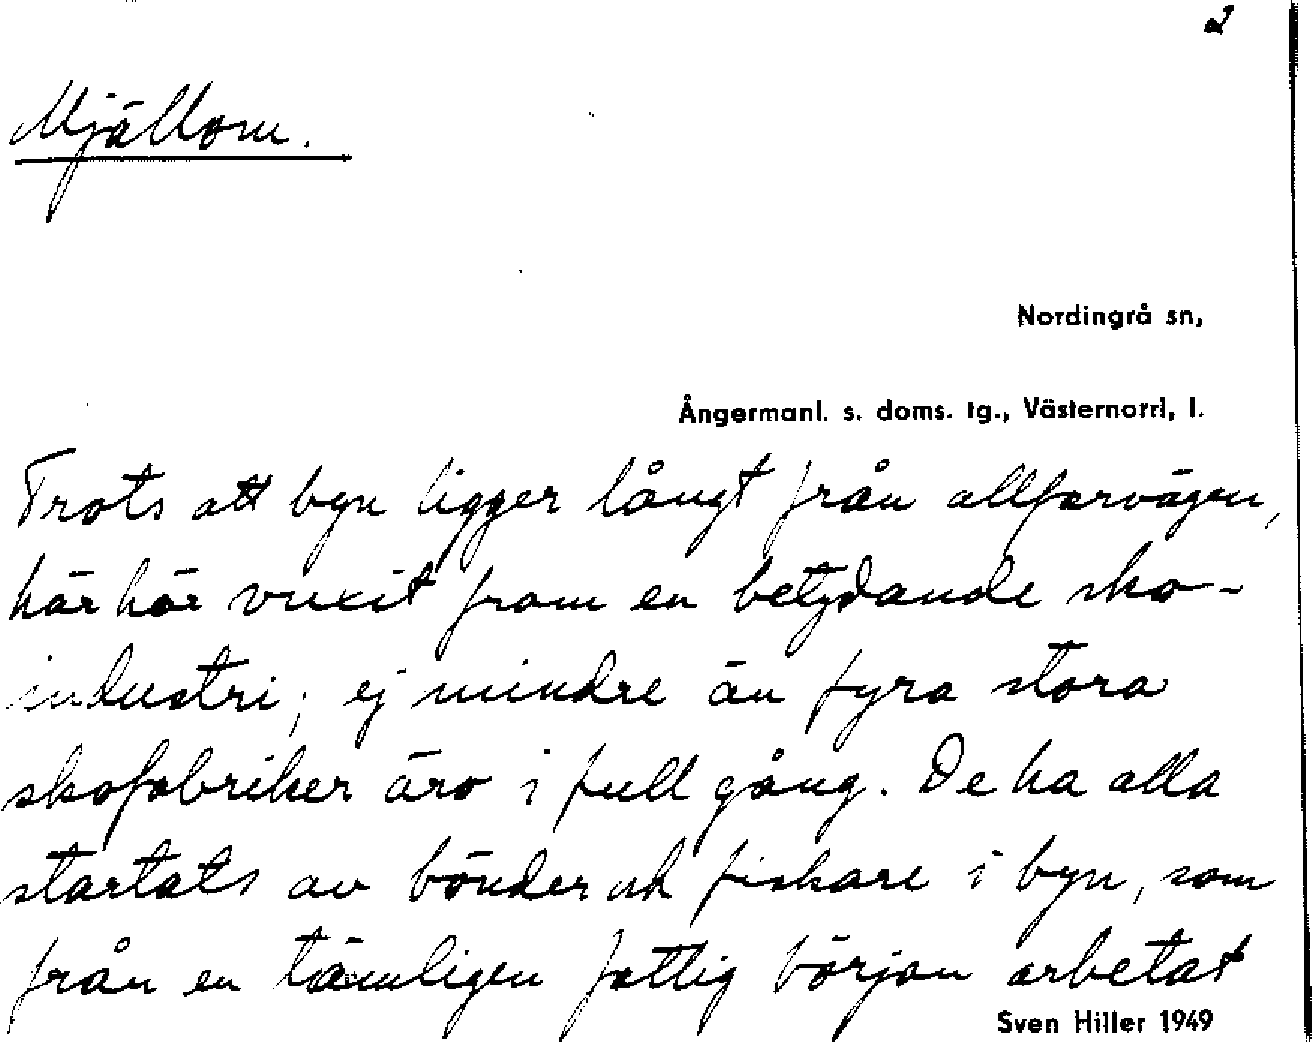 2
Mjällom.
Nordingrå sn,
Ångermanl. s. doms. tg., Västernorrl, l.
Trots att byn ligger långt från allfarvägen,
här har vuxit fram en betydande sko-
industri; ej mindre än fyra stora
skofabriker äro i full gång. De ha alla
startats av bönder och fiskare i byn, som
från en tämligen fattig början arbetat
Sven Hiller 1949